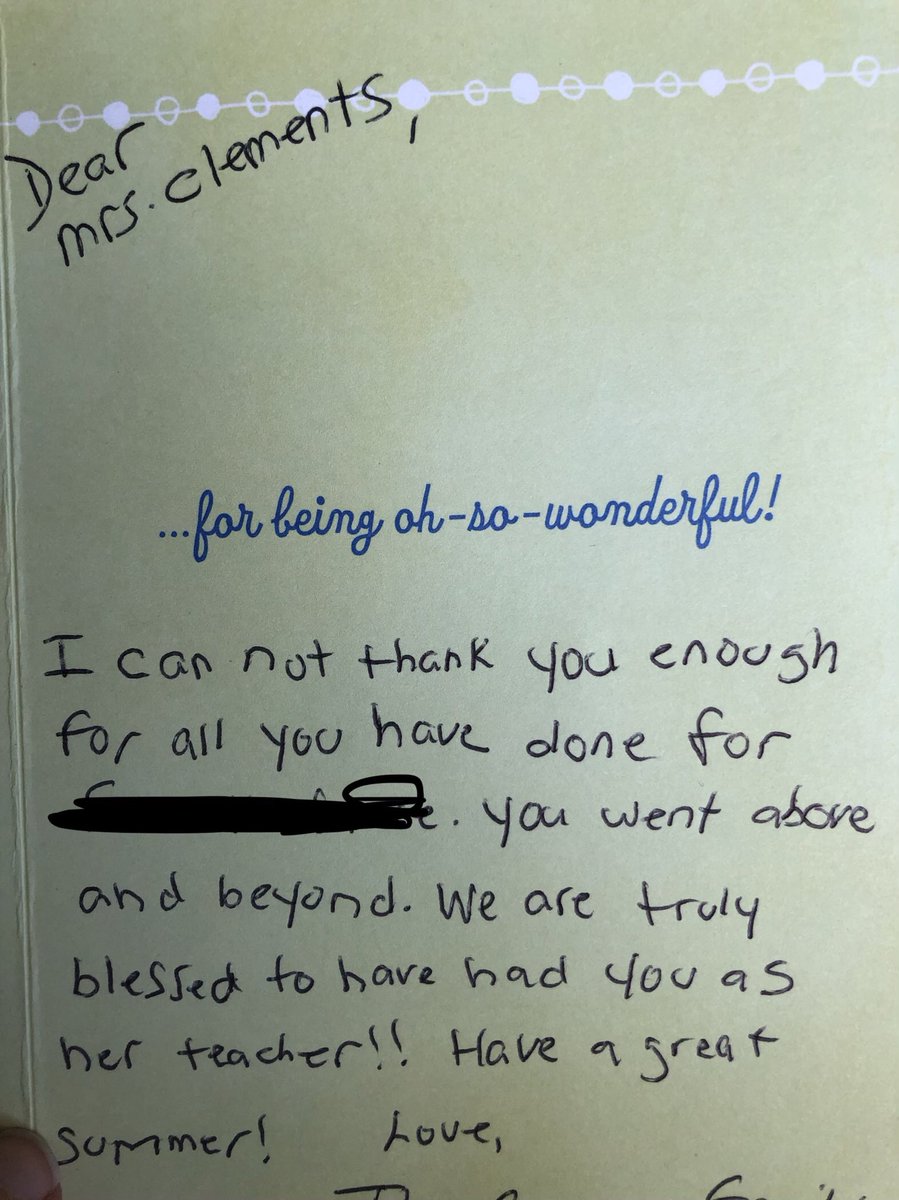 Dear
mrs. clements,
...for being oh-so-wonderful!
I can not thank you enough
for all you have done for
. You went above
and beyond. We are truly
blessed to have had you as
her teacher!! Have a great
summer! Love,